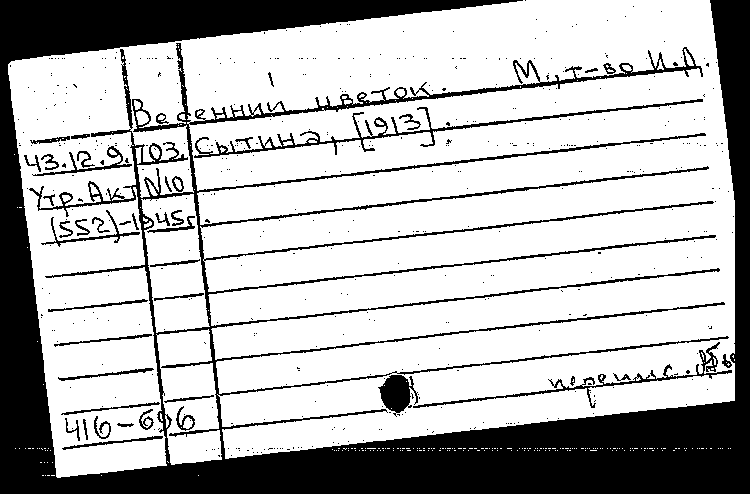 Весенний цветок. М., т-во И.Д.
43.12.9.703. Сытина, [1913].
Утр. Акт №10
(552)-1945г.
перепис.
416-696